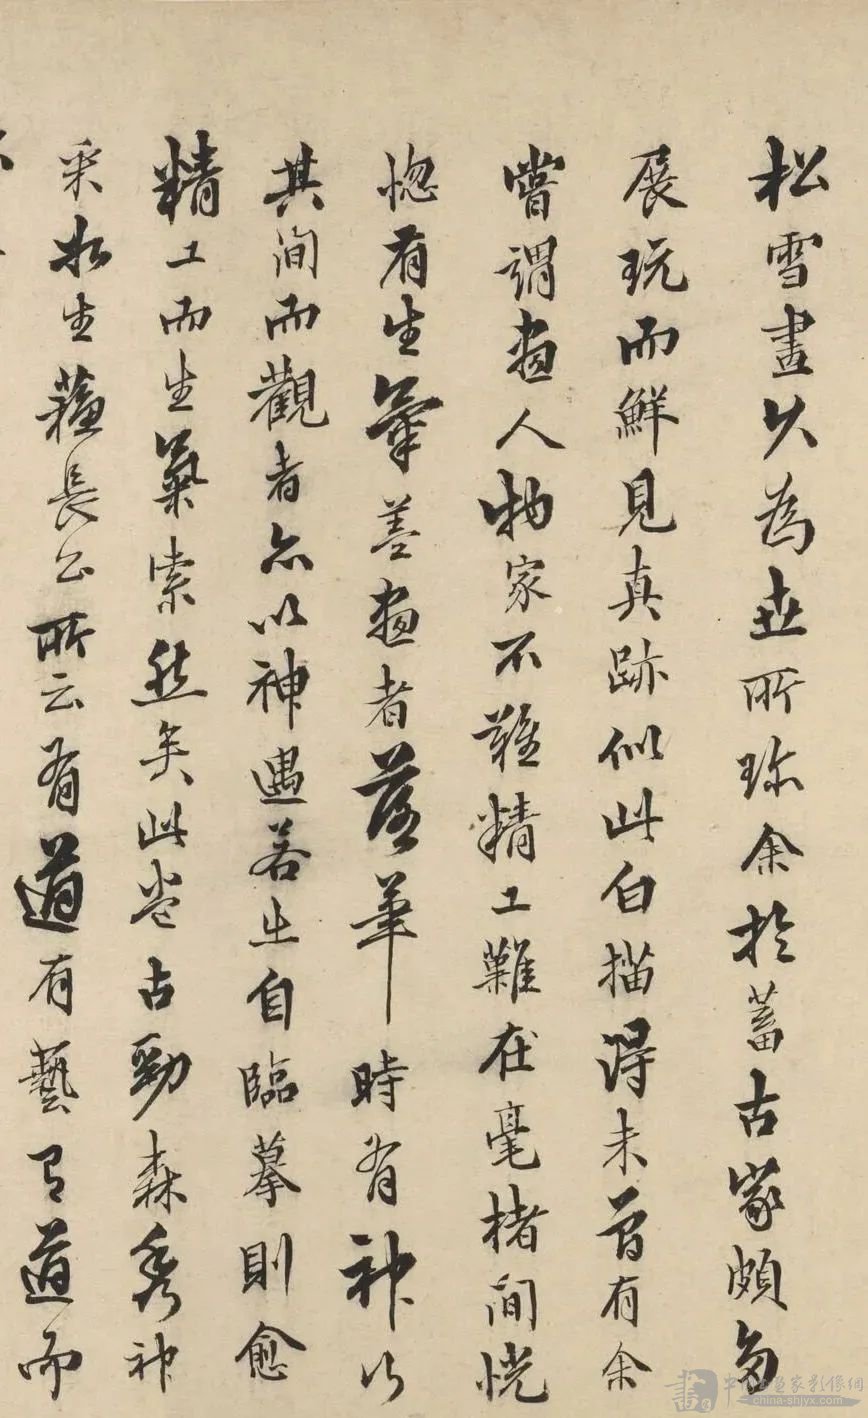 松雪畫久為世所珍余於蓄古家頗多
展玩而鮮見真跡似此白描淂未曾有余
嘗謂畫人物家不難精工難在毫楮間恍
惚有生氣善畫者落筆時有神行
其間而觀者亦以神遇若出自臨摹則愈
精工而生氣索然矣此卷古勁森秀神
采如生蘓長公所云有道有藝有道而
中國書畫家影像網
china-shjyx.com